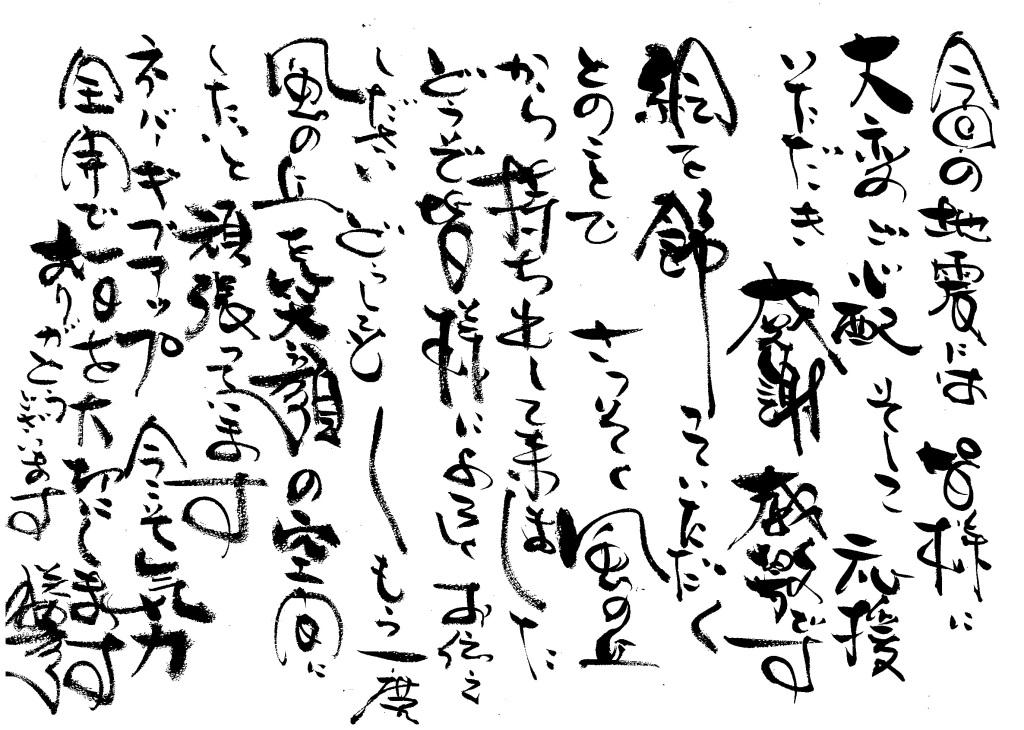 今回の地震には 皆様に
大変のご心配 そしてご 応援
いただき 感謝 感激です
絵を飾っていただく
とのことで さっそく 風の丘
から 持ち出して来ました
どうぞ皆様によろしくお伝え
ください どうしても もう一度
風の丘を笑顔の空間に
したいと 頑張っています
ネバーギブアップ 今こそ気力
全開で一日を大切にします
ありがとうございます